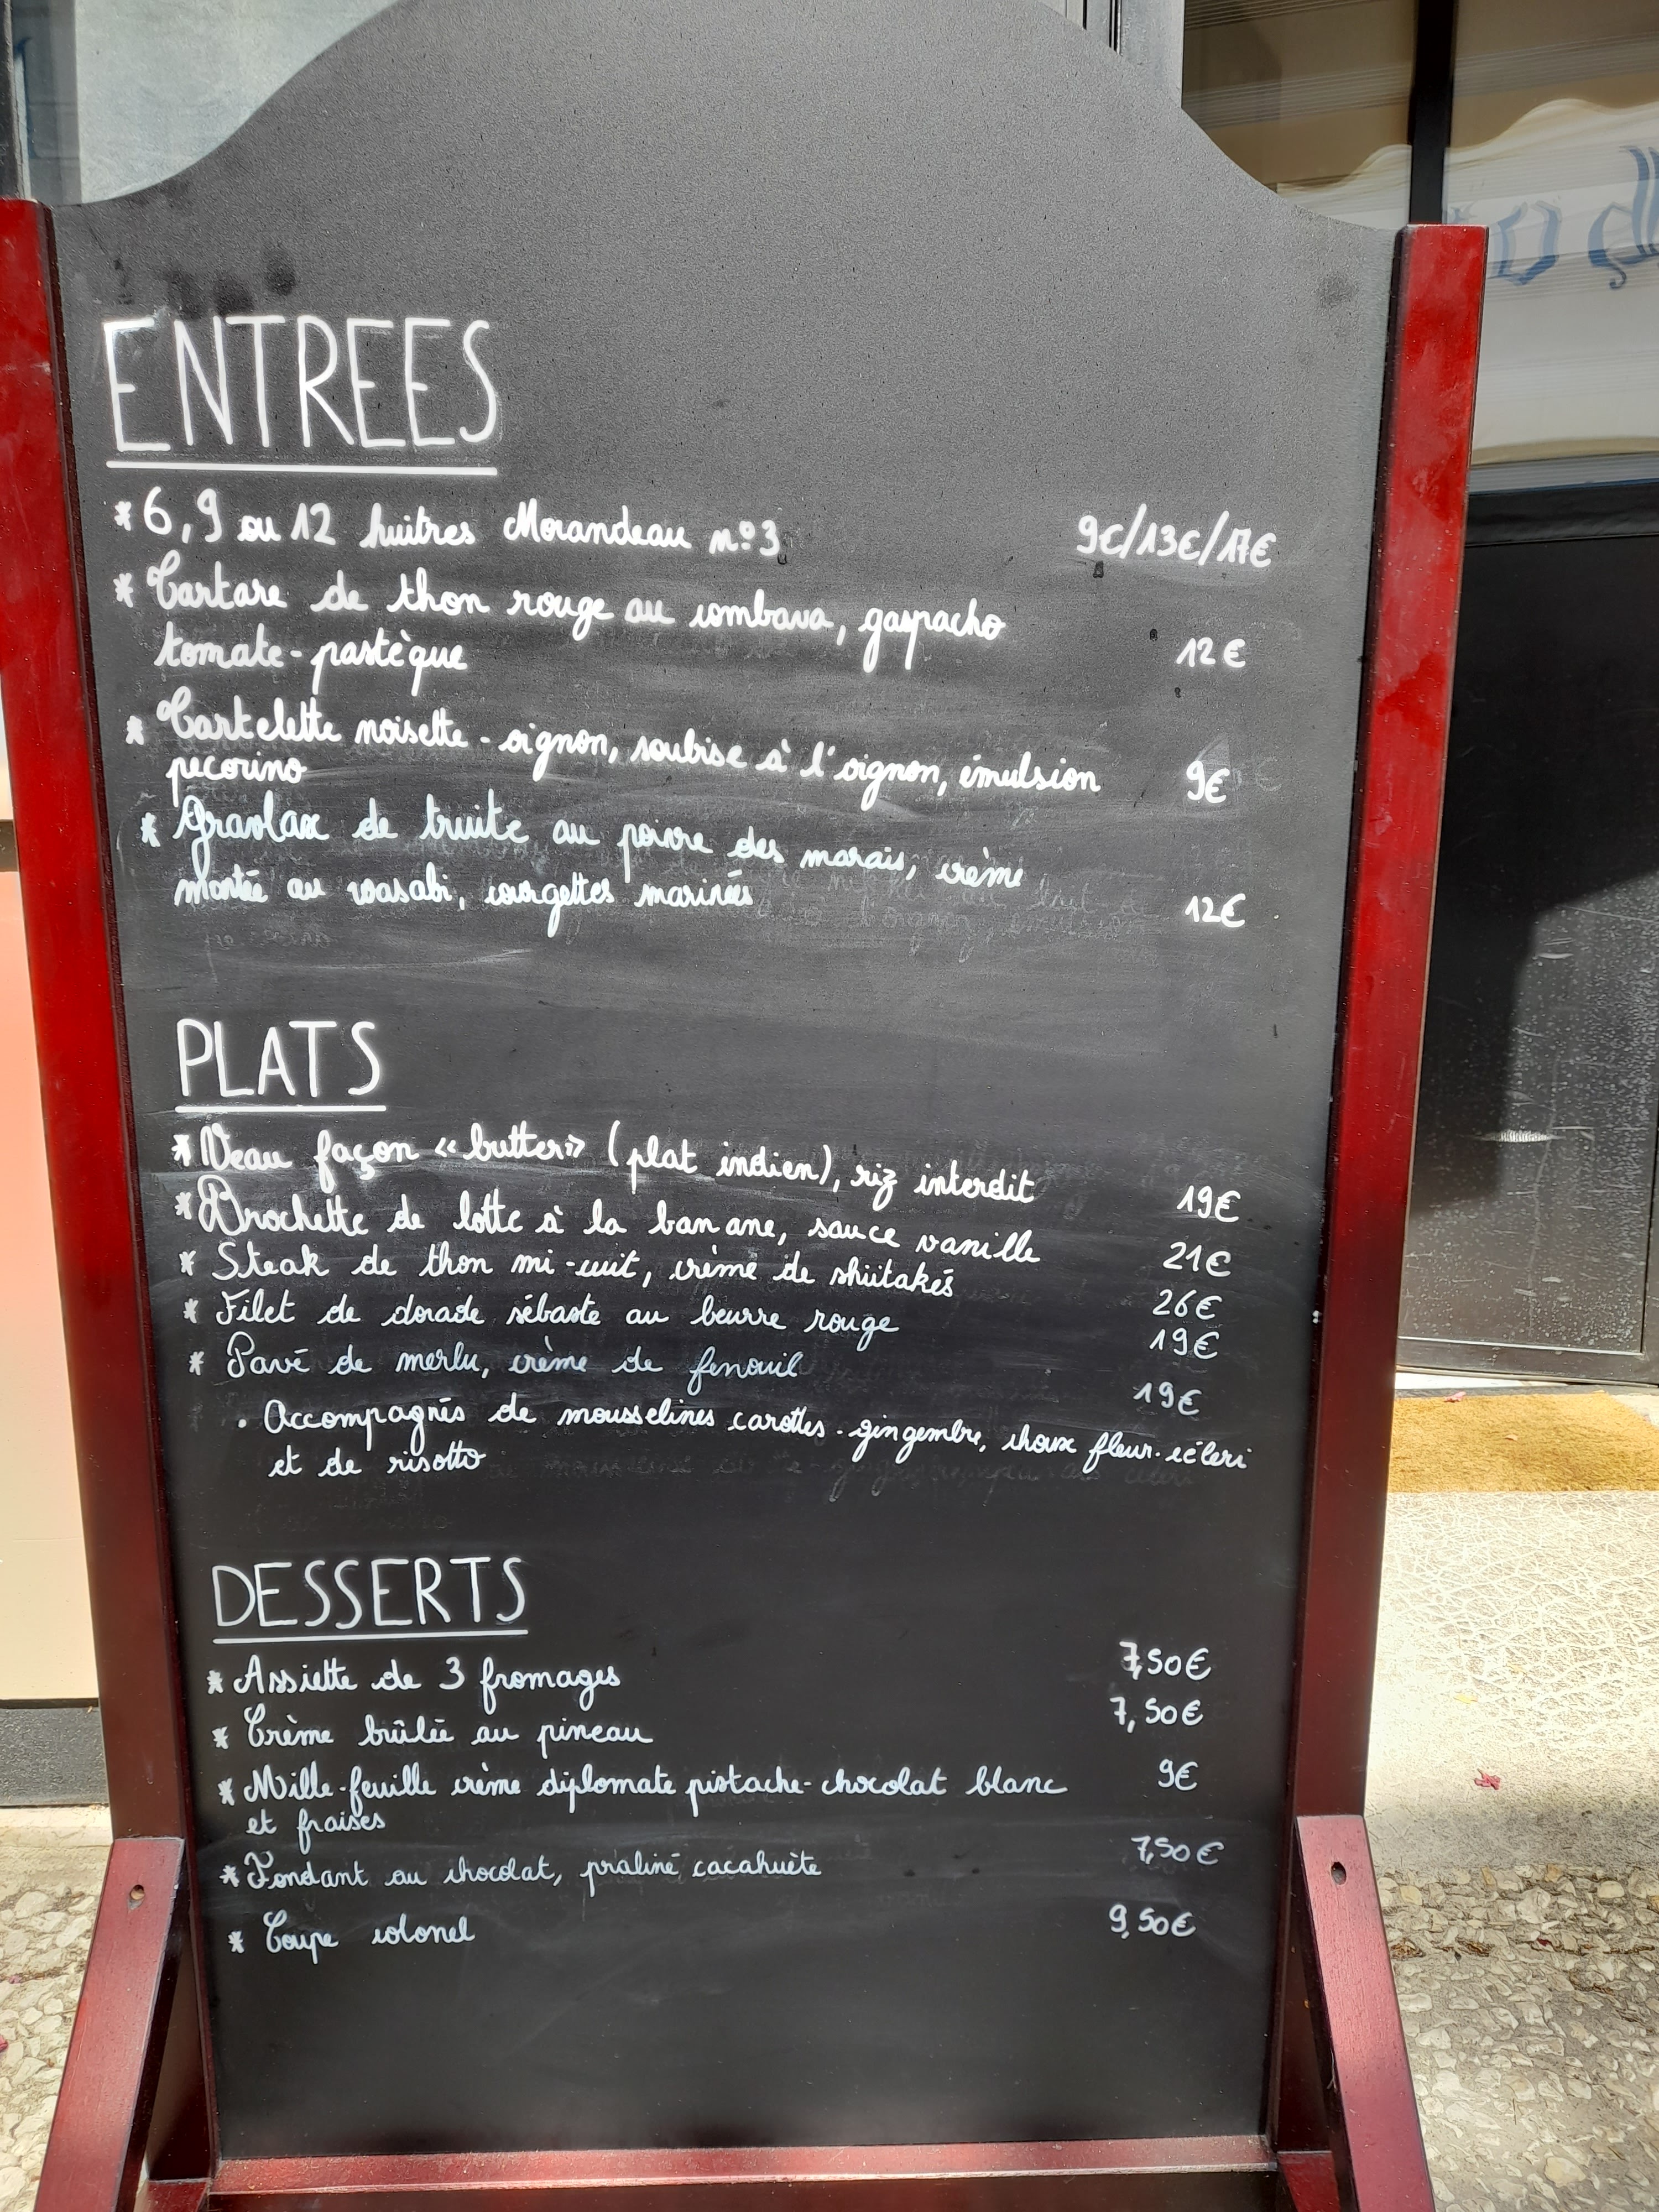 ENTREES
*6, 9 ou 12 huitres Morandeau n°3 9€/13€/17€
* Tartare de thon rouge au combava, gaspacho
tomate-pastèque 12€
* Tartelette noisette-oignon, soubise à l'oignon, émulsion
pecorino 9€
* Gravlax de truite au poivre des marais, crème
montée au wasabi, courgettes marinées 12€
PLATS
*Veau façon «butter» (plat indien), riz interdit 19€
*Brochette de lotte à la banane, sauce vanille 21€
* Steak de thon mi-cuit, crème de shiitakés 26€
* Filet de dorade sébaste au beurre rouge 19€
* Pavé de merlu, crème de fenouil 19€
. Accompagnés de mousselines carottes-gingembre, choux fleur-céleri
et de risotto
DESSERTS
* Assiette de 3 fromages 7,50€
* Crème brûlée au pineau 7,50€
* Mille-feuille crème diplomate pistache-chocolat blanc 9€
et fraises
* Fondant au chocolat, praliné cacahuète 7,50€
* Coupe colonel 9,50€